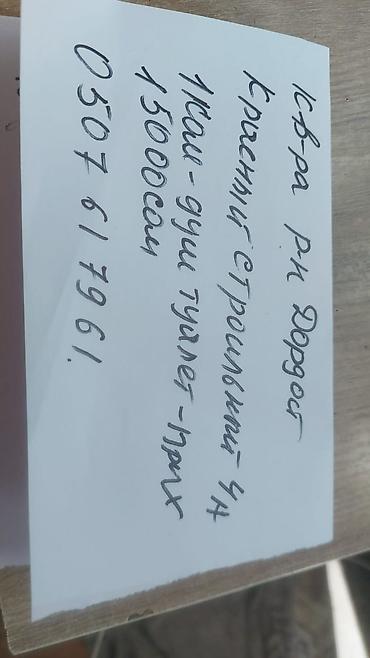 кв-ра р.н Дордой
Красный Строильный 4А
1 ком - душ туалет - прих
15000 сом
0507 61 79 61.